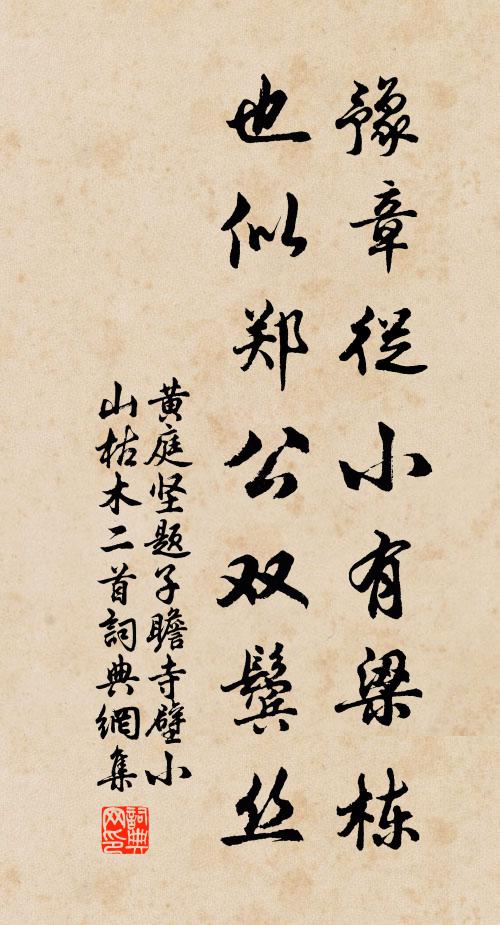 豫章從小有梁栋
也似郑公双鬓丝
黄庭坚题子瞻寺壁小
山枯木二首詞典網集
詞典
网印